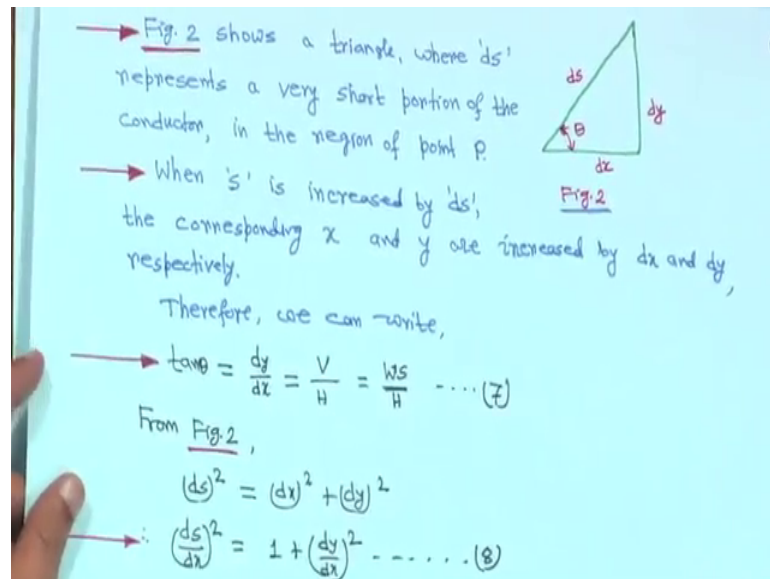 Fig. 2 shows a triangle, where 'ds'
represents a very short portion of the
conductor, in the region of point P.
ds
θ
dy
dx
Fig. 2
When 's' is increased by 'ds',
the corresponding x and y are increased by dx and dy,
respectively.
Therefore, we can write,
tanθ = dy/dx = V/H = WS/H ---- (7)
From Fig. 2,
(ds)² = (dx)² + (dy)²
∴ (ds/dx)² = 1 + (dy/dx)² ------ (8)